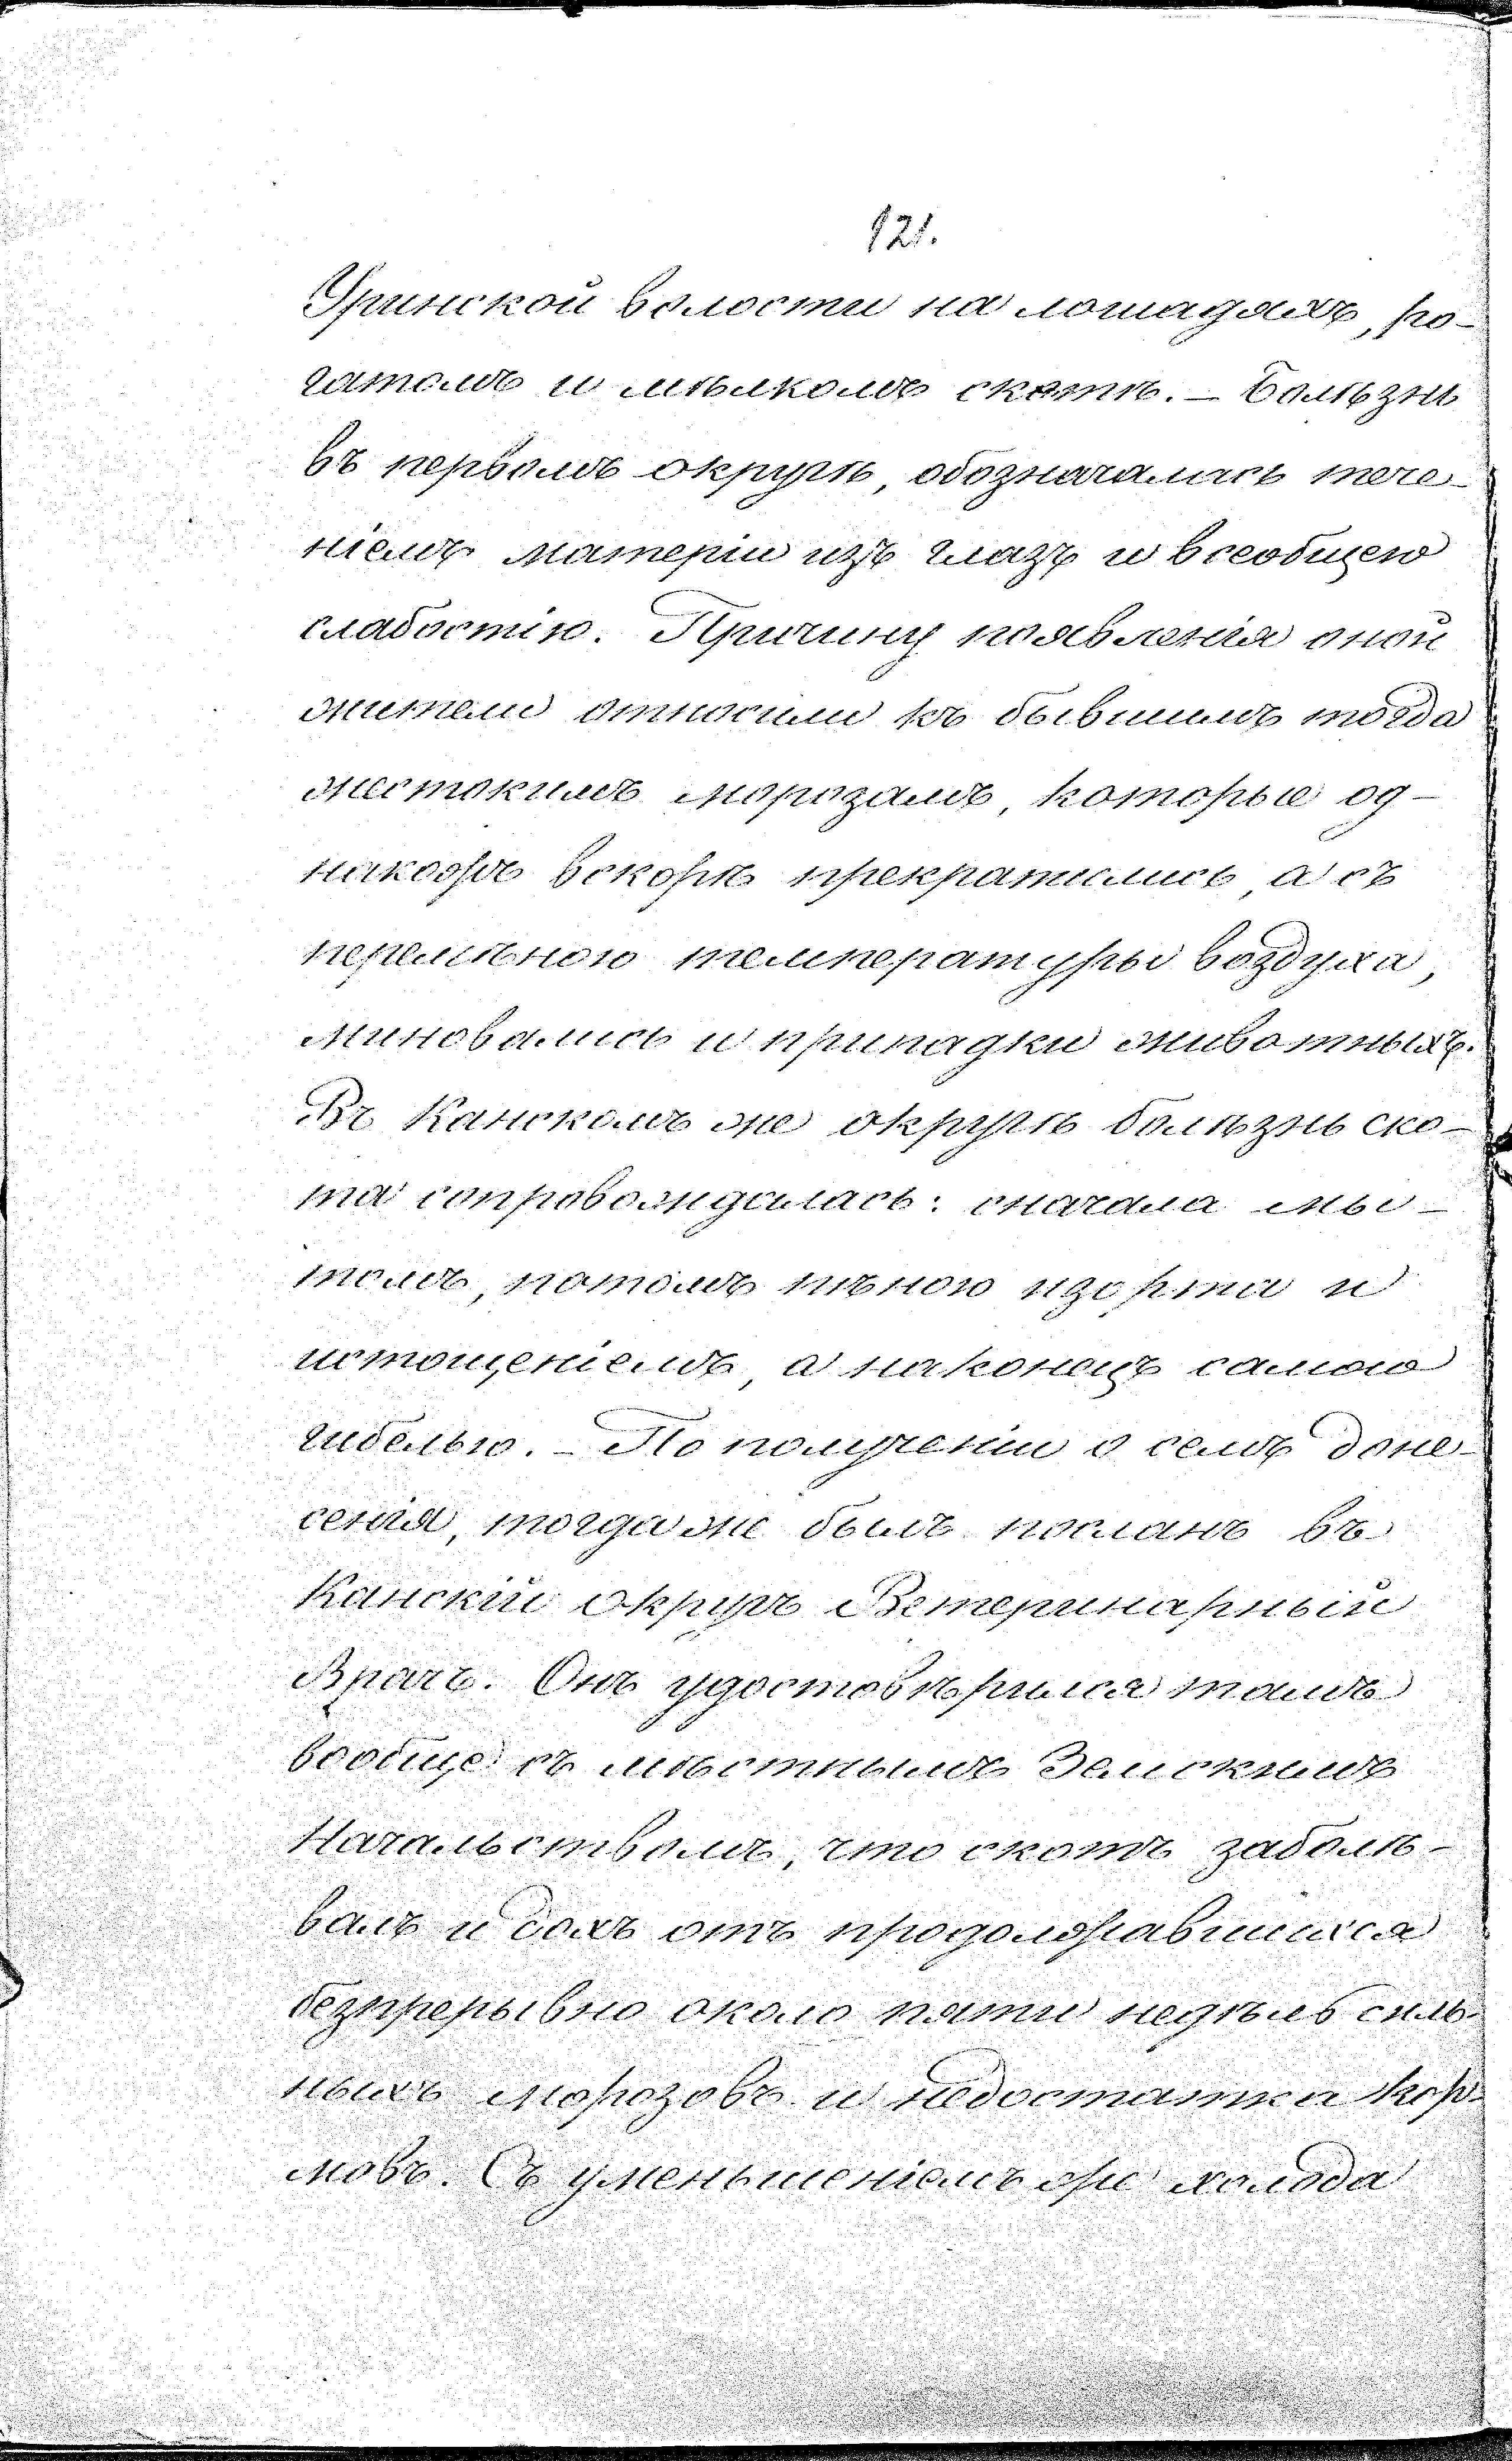 121.
Уринской волости на лошадяхъ, ро-
гатомъ и мѣлкомъ скотѣ. – Болѣзнь
въ первомъ округѣ, обозначалась тече-
ніемъ матеріи изъ глазъ и всеобщею
слабостію. Причину появленія оной
жители относили къ бывшимъ тогда
жестокимъ морозамъ, которые од-
накожъ вскорѣ прекратились, а съ
перемѣною температуры воздуха,
миновались и припадки животныхъ.
Въ Канскомъ же округѣ болѣзнь ско-
та сопровождалась: сначала мы-
томъ, потомъ пѣною изо рта и
истощеніемъ, а наконецъ самою
гибелью. – По полученіи о семъ доне-
сенія, тогда же былъ посланъ въ
Канскій округъ Ветеринарный
Врачъ. Онъ удостовѣрился тамъ
вообще съ мѣстнымъ Земскимъ
Начальствомъ, что скотъ заболѣ-
валъ и дохъ отъ продолжавшихся
безпрерывно около пяти недѣль силь-
ныхъ морозовъ и недостатка кор-
мовъ. Съ уменьшеніемъ же холода